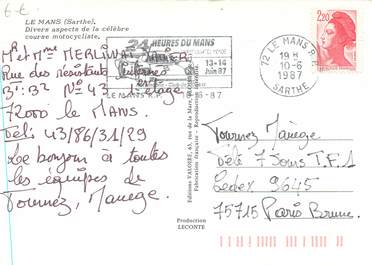 6 €
LE MANS (Sarthe).
Divers aspects de la célèbre
course motocycliste.
Mr et Mme MERLIN
Rue des résistants internés
Bt: B2 No 43 1er étage
72000 le MANS.
Tél: 43/86/31/29
Le bonjour à toutes
les équipes de
Tournez, Manège.
24 HEURES DU MANS
13-14
Juin 87
LE MANS R.P.
72 LE MANS R.P.
19 H
10-6
1987
SARTHE
2,20
Editions VALOIRE, 65, rue de la Mare,
Fabrication française - Reproduction
Production
LECONTE
Tournez Manège
Télé 7 Jours T.F.1
Cedex 9645
75715 Paris Brune.